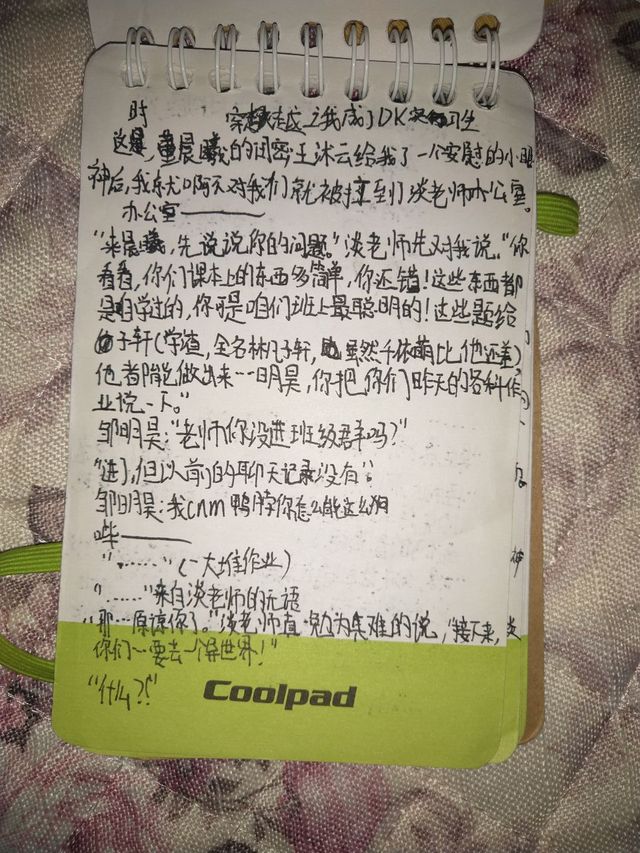 时 穿越之我成了DK实习生
这是,董晨曦的闭密王沐云给我了一个安慰的小眼
神后,我东尤啊不对我们就被拉到了淡老师办公室。
办公室——
“来晨曦,先说说你的问题。”淡老师先对我说。“你
看看,你们课本上的东西多简单,你还错!这些东西都
是自学过的,你可是咱们班上最聪明的!这些题给
子轩(学渣,全名林子轩,虽然千依萌比他还差)
他都能做出来…明昊,你把你们昨天的各科作
业说一下。”
邹明昊:“老师你没进班级群吗?”
“进了,但以前的聊天记录没有”。
邹明昊:我cnm鸭脖你怎么能这么狗
哔——
“……”(一大堆作业)
“……”来自淡老师的沉语
“那…原谅你了。”淡老师真·勉为其难的说,“接下来,
你们…要去一个异世界!”
“什么?!”
Coolpad